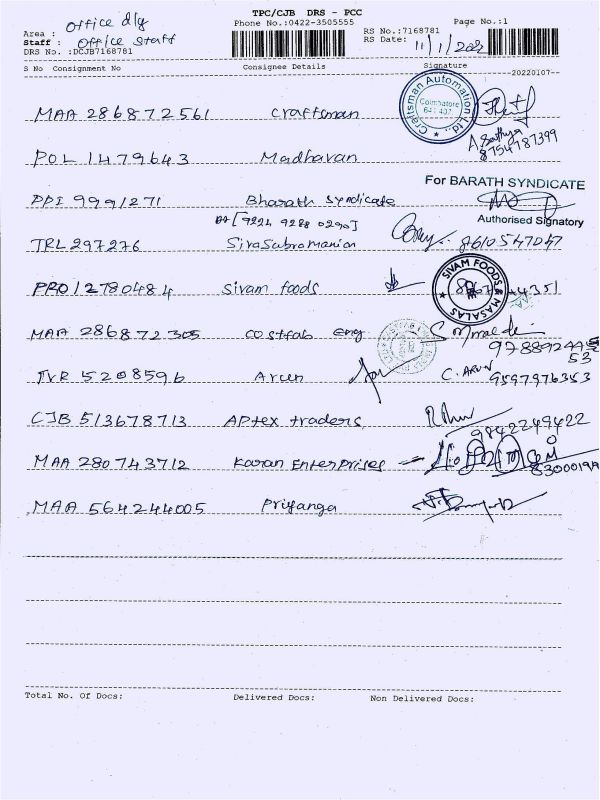 TPC/CJB DRS - PCC
Phone No.:0422-3505555
Page No.:1
Area : Office dly
Staff : Office Staff
DRS No. :DCJB7168781
RS No.:7168781
RS Date: 11/1/2022
S No Consignment No Consignee Details Signature
--20220107--
MAA 286872561 Craftsman
Craftsman Automation Ltd.,
Coimbatore
641 407
A. Sathya
8754787399
POL 1479643 Madhavan
For BARATH SYNDICATE
PPI 99991271 Bharath Syndicate
Authorised Signatory
[9224 9288 0290]
TRL 297276 SivaSubramanian 8610547047
PRO 12780484 Sivam foods
SIVAM FOODS & MASALAS
4351
MAA 286872305 costfab eng
9788924453
TVR 5208596 Arun
C. ARUN
9597976353
CJB 513678713 APtex traders,
9842249422
MAA 280743712 Karan Enterprises
MAA 564244005 Priyanga
Total No. Of Docs: Delivered Docs: Non Delivered Docs: